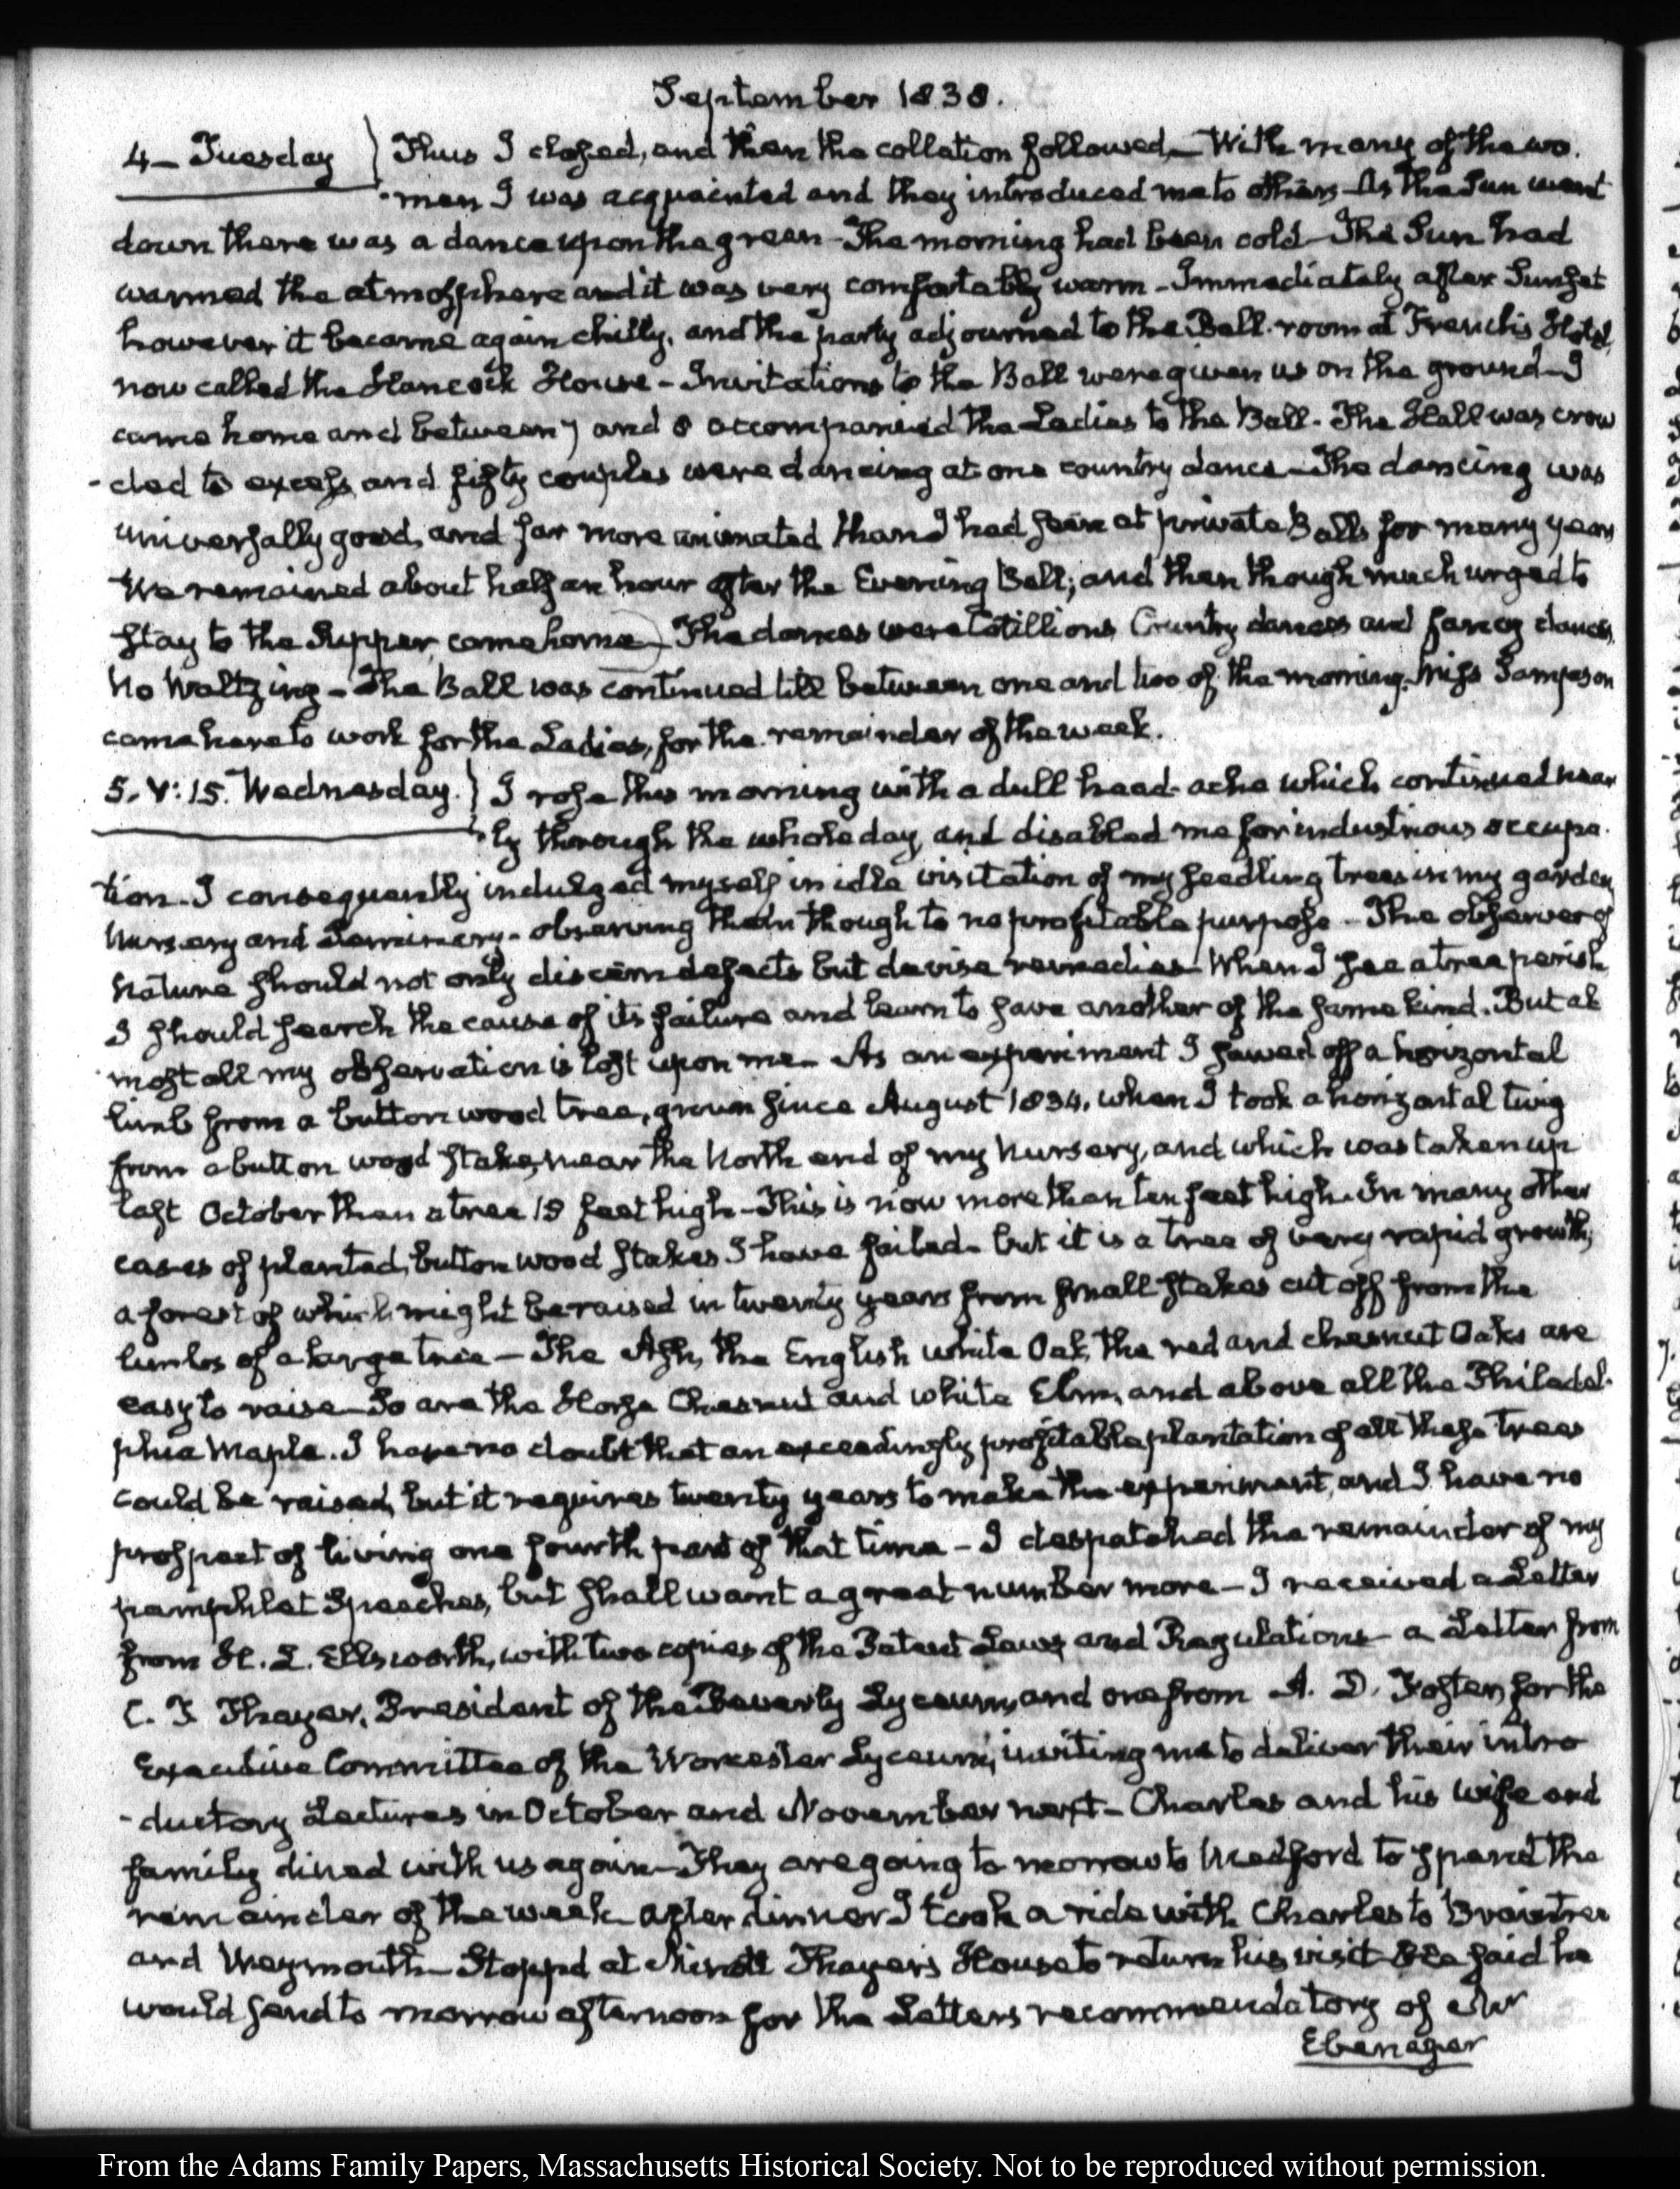 September 1838.
4 — Tuesday } Thus I closed, and then the collation followed — With many of the wo-
-men I was acquainted and they introduced me to others — As the Sun went
down there was a dance upon the green — The morning had been cold — The Sun had
warmed the atmosphere and it was very comfortably warm — Immediately after Sunset
however it became again chilly, and the party adjourned to the Ball-room at French's Hotel,
now called the Hancock House — Invitations to the Ball were given us on the ground — I
came home and between 7 and 8 accompanied the Ladies to the Ball. The Hall was crow
-ded to excess, and fifty couples were dancing at one country dance — The dancing was
universally good, and far more animated than I had seen at private Balls for many years
We remained about half an hour after the Evening Bell; and then though much urged to
stay to the Supper, came home — The dances were Cotillions, Country dances and fancy dances,
No Waltzing — The Ball was continued till between one and two of the morning. Miss Sampson
came here to work for the Ladies, for the remainder of the week.
5. V:15. Wednesday. } I rose this morning with a dull head-ache which continued near
-ly through the whole day, and disabled me for industrious occupa-
tion — I consequently indulged myself in idle visitation of my seedling trees in my garden,
Nursery and Seminary — observing them though to no profitable purpose — The observer of
Nature should not only discern defects but devise remedies — When I see a tree perish,
I should search the cause of its failure and learn to save another of the same kind. But al
-most all my observation is lost upon me — As an experiment I sawed off a horizontal
limb from a button wood tree, grown since August 1834, when I took a horizontal twig
from a button wood stake, near the North end of my Nursery, and which was taken up
last October then a tree 15 feet high — This is now more than ten feet high. In many other
cases of planted button wood stakes I have failed — but it is a tree of very rapid growth,
a forest of which might be raised in twenty years from small stakes cut off from the
limbs of a large tree — The Ash, the English white Oak, the red and chesnut Oaks are
easy to raise — So are the Horse Chesnut and white Elm, and above all the Philadel-
phia Maple. I have no doubt that an exceedingly profitable plantation of all these trees
could be raised, but it requires twenty years to make the experiment, and I have no
prospect of living one fourth part of that time — I despatched the remainder of my
pamphlet Speeches, but shall want a great number more — I received a Letter
from H. L. Ellsworth, with two copies of the Patent Laws and Regulations — a Letter from
C. T. Thayer, President of the Beverly Lyceum, and one from A. D. Foster, for the
Executive Committee of the Worcester Lyceum, inviting me to deliver their intro
-ductory Lectures in October and November next — Charles and his wife and
family dined with us again — They are going to morrow to Medford to spend the
remainder of the week — after dinner I took a ride with Charles to Braintree
and Weymouth — Stopp'd at Minott Thayer's House to return his visit — He said he
would send to morrow afternoon for the Letters recommendatory of Mr
Ebenezer
From the Adams Family Papers, Massachusetts Historical Society. Not to be reproduced without permission.